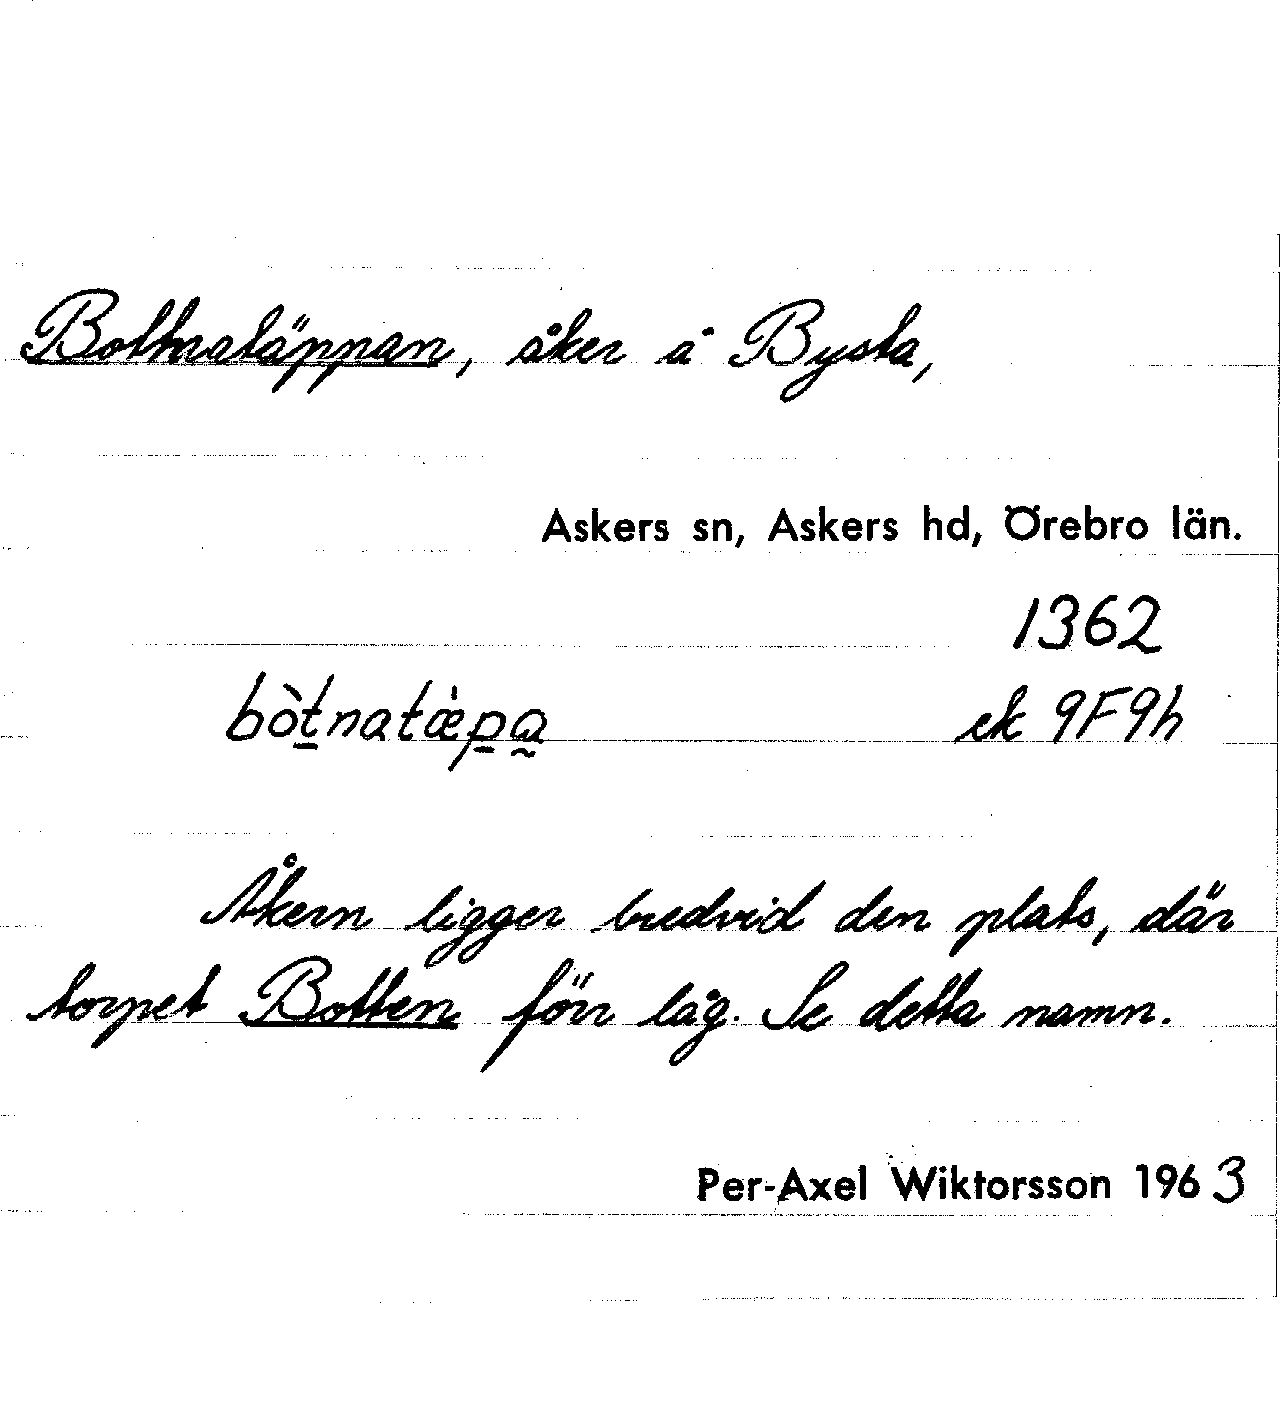 Bottnatäppan, åker å Bysta,
Askers sn, Askers hd, Örebro län.
1362
bòt̲natæ̀p̲a̰ ek 9F9h
Åkern ligger bredvid den plats, där
torpet Botten förr låg. Se detta namn.
Per-Axel Wiktorsson 1963